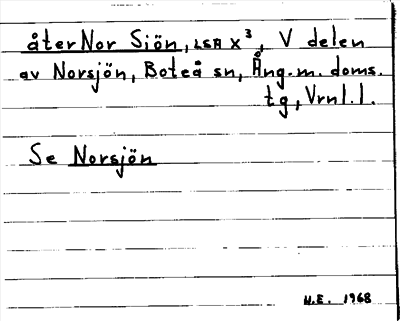 åter Nor Siön, LSA X³, V delen
av Norsjön, Boteå sn, Ång.m. doms.
tg, Vrnl.l.
Se Norsjön
H.E. 1968